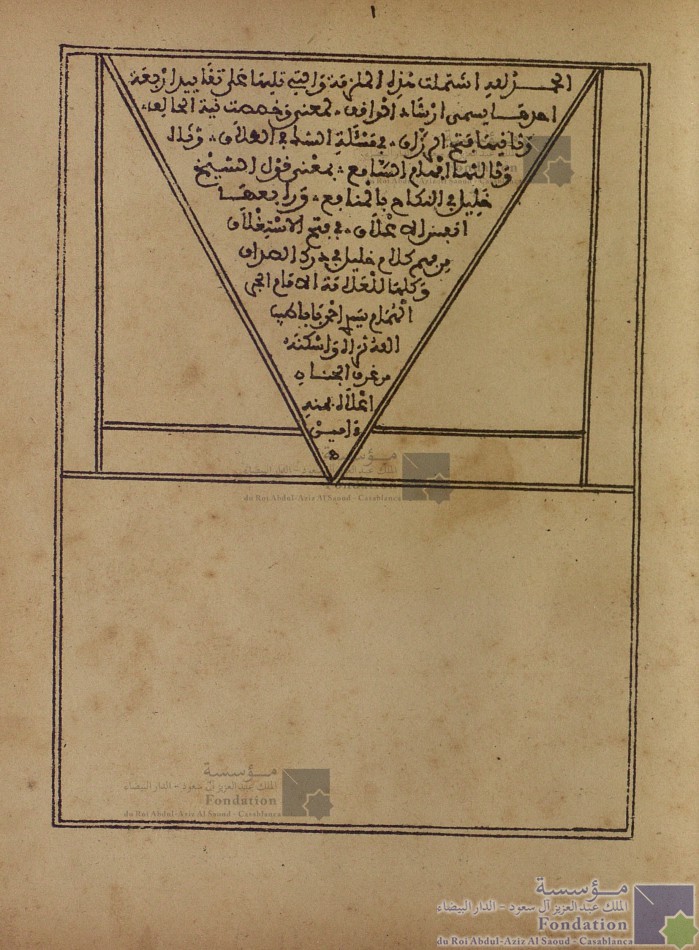 ١
لقد اشتملت هذه الملزمة والتي تليها على تقاييد اربعة
احدهــا يسمى ارشاد الواقف لمعنى وخصصت نية الحالف
وثانيها فتح الرزاق في مسئلة الشك في الطلاق
وثالثها افهام السامع بمعنى قول الشيخ
خليل في النكاح بالمنافع ورابعهــا
في فتح الاستغلاق
من فهم كلام خليل في درك الصداق
وكلها للعلامة الامام
الهمام سيدي احمد بابا طيب
الله ثراه واسكنه
من غرف الجنات
اعلاه بمنه
ءامين
ه
مؤسسة
الملك عبد العزيز آل سعود - الدار البيضاء
Fondation
du Roi Abdul-Aziz Al Saoud - Casablanca
مؤسسة
الملك عبد العزيز آل سعود - الدار البيضاء
Fondation
du Roi Abdul-Aziz Al Saoud - Casablanca
مؤسسة
الملك عبد العزيز آل سعود - الدار البيضاء
Fondation
du Roi Abdul-Aziz Al Saoud - Casablanca